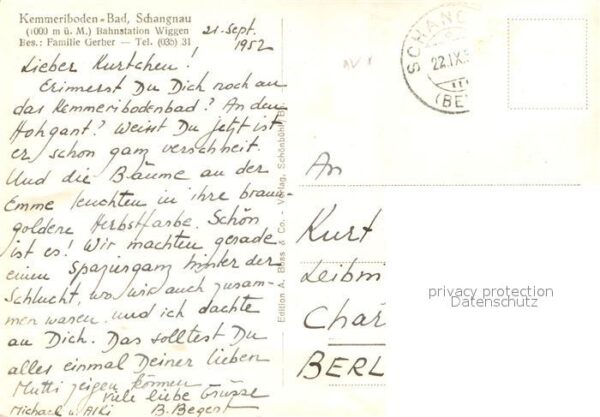 Kemmeriboden-Bad, Schangnau
(1000 m ü. M.) Bahnstation Wiggen
Bes.: Familie Gerber — Tel. (035) 31
21. Sept.
1952
Lieber Kurtchen!
Erinnerst Du Dich noch an
das Kemmeribodenbad? An den
Hohgant? Weisst Du jetzt ist
er schon ganz verschneit.
Und die Bäume an der
Emme leuchten in ihre braun
goldene Herbstfarbe. Schön
ist es! Wir machten gerade
einen Spaziergang hinter der
Schlucht, wo wir auch zusam-
men waren und ich dachte
an Dich. Das solltest Du
alles einmal Deiner lieben
Mutti zeigen können
viele liebe Grüsse
Michael u.
B. Begert
Edition A. Boss & Co. - Verlag, Schönbühl/B
SCHANG
22.IX.5
(BE
An
Kurt
Leibni
Char
BERL
privacy protection
Datenschutz